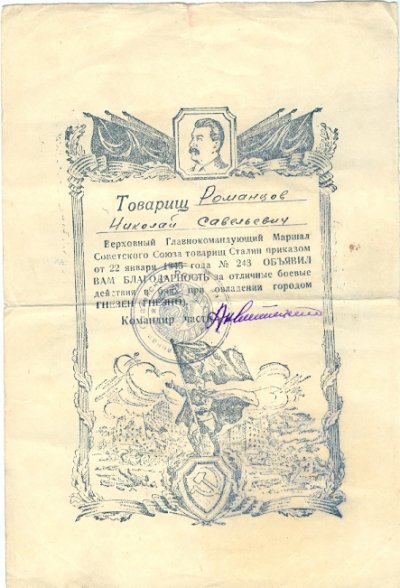 Товарищ Романцов
Николай Савельевич
Верховный Главнокомандующий Маршал
Советского Союза товарищ Сталин приказом
от 22 января 1945 года № 243 ОБЪЯВИЛ
ВАМ БЛАГОДАРНОСТЬ за отличные боевые
действия в бою при овладении городом
ГНЕЗЕН (ГНЕЗНО).
Командир части